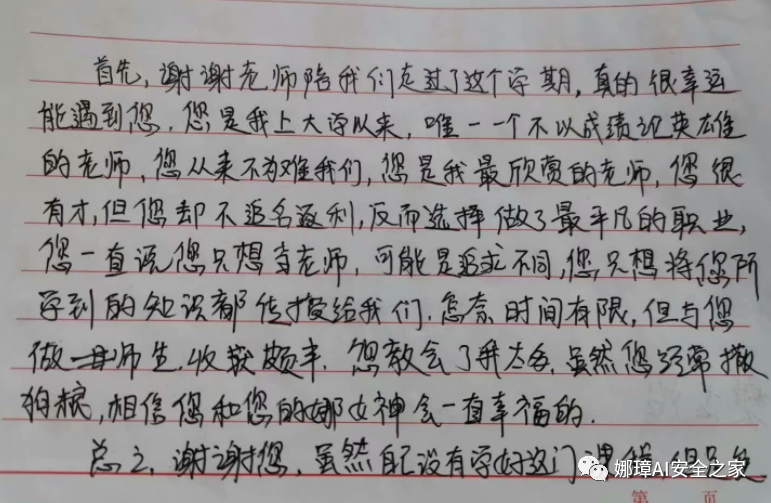 首先，谢谢老师陪我们走过了这个学期，真的很幸运
能遇到您．您是我上大学以来，唯一一个不以成绩论英雄
的老师，您从来不为难我们，您是我最欣赏的老师，您很
有才，但您却不追名逐利，反而选择做了最平凡的职业，
您一直说您只想当老师，可能是追求不同，您只想将您所
学到的知识都传授给我们．怎奈时间有限，但与您
做一师生．收获颇丰．您教会了我太多．虽然您经常撒
狗粮，相信您和您的娜女神会一直幸福的．
总之，谢谢您，虽然自己没有学好这门课程，但
娜璋AI安全之家
第 页